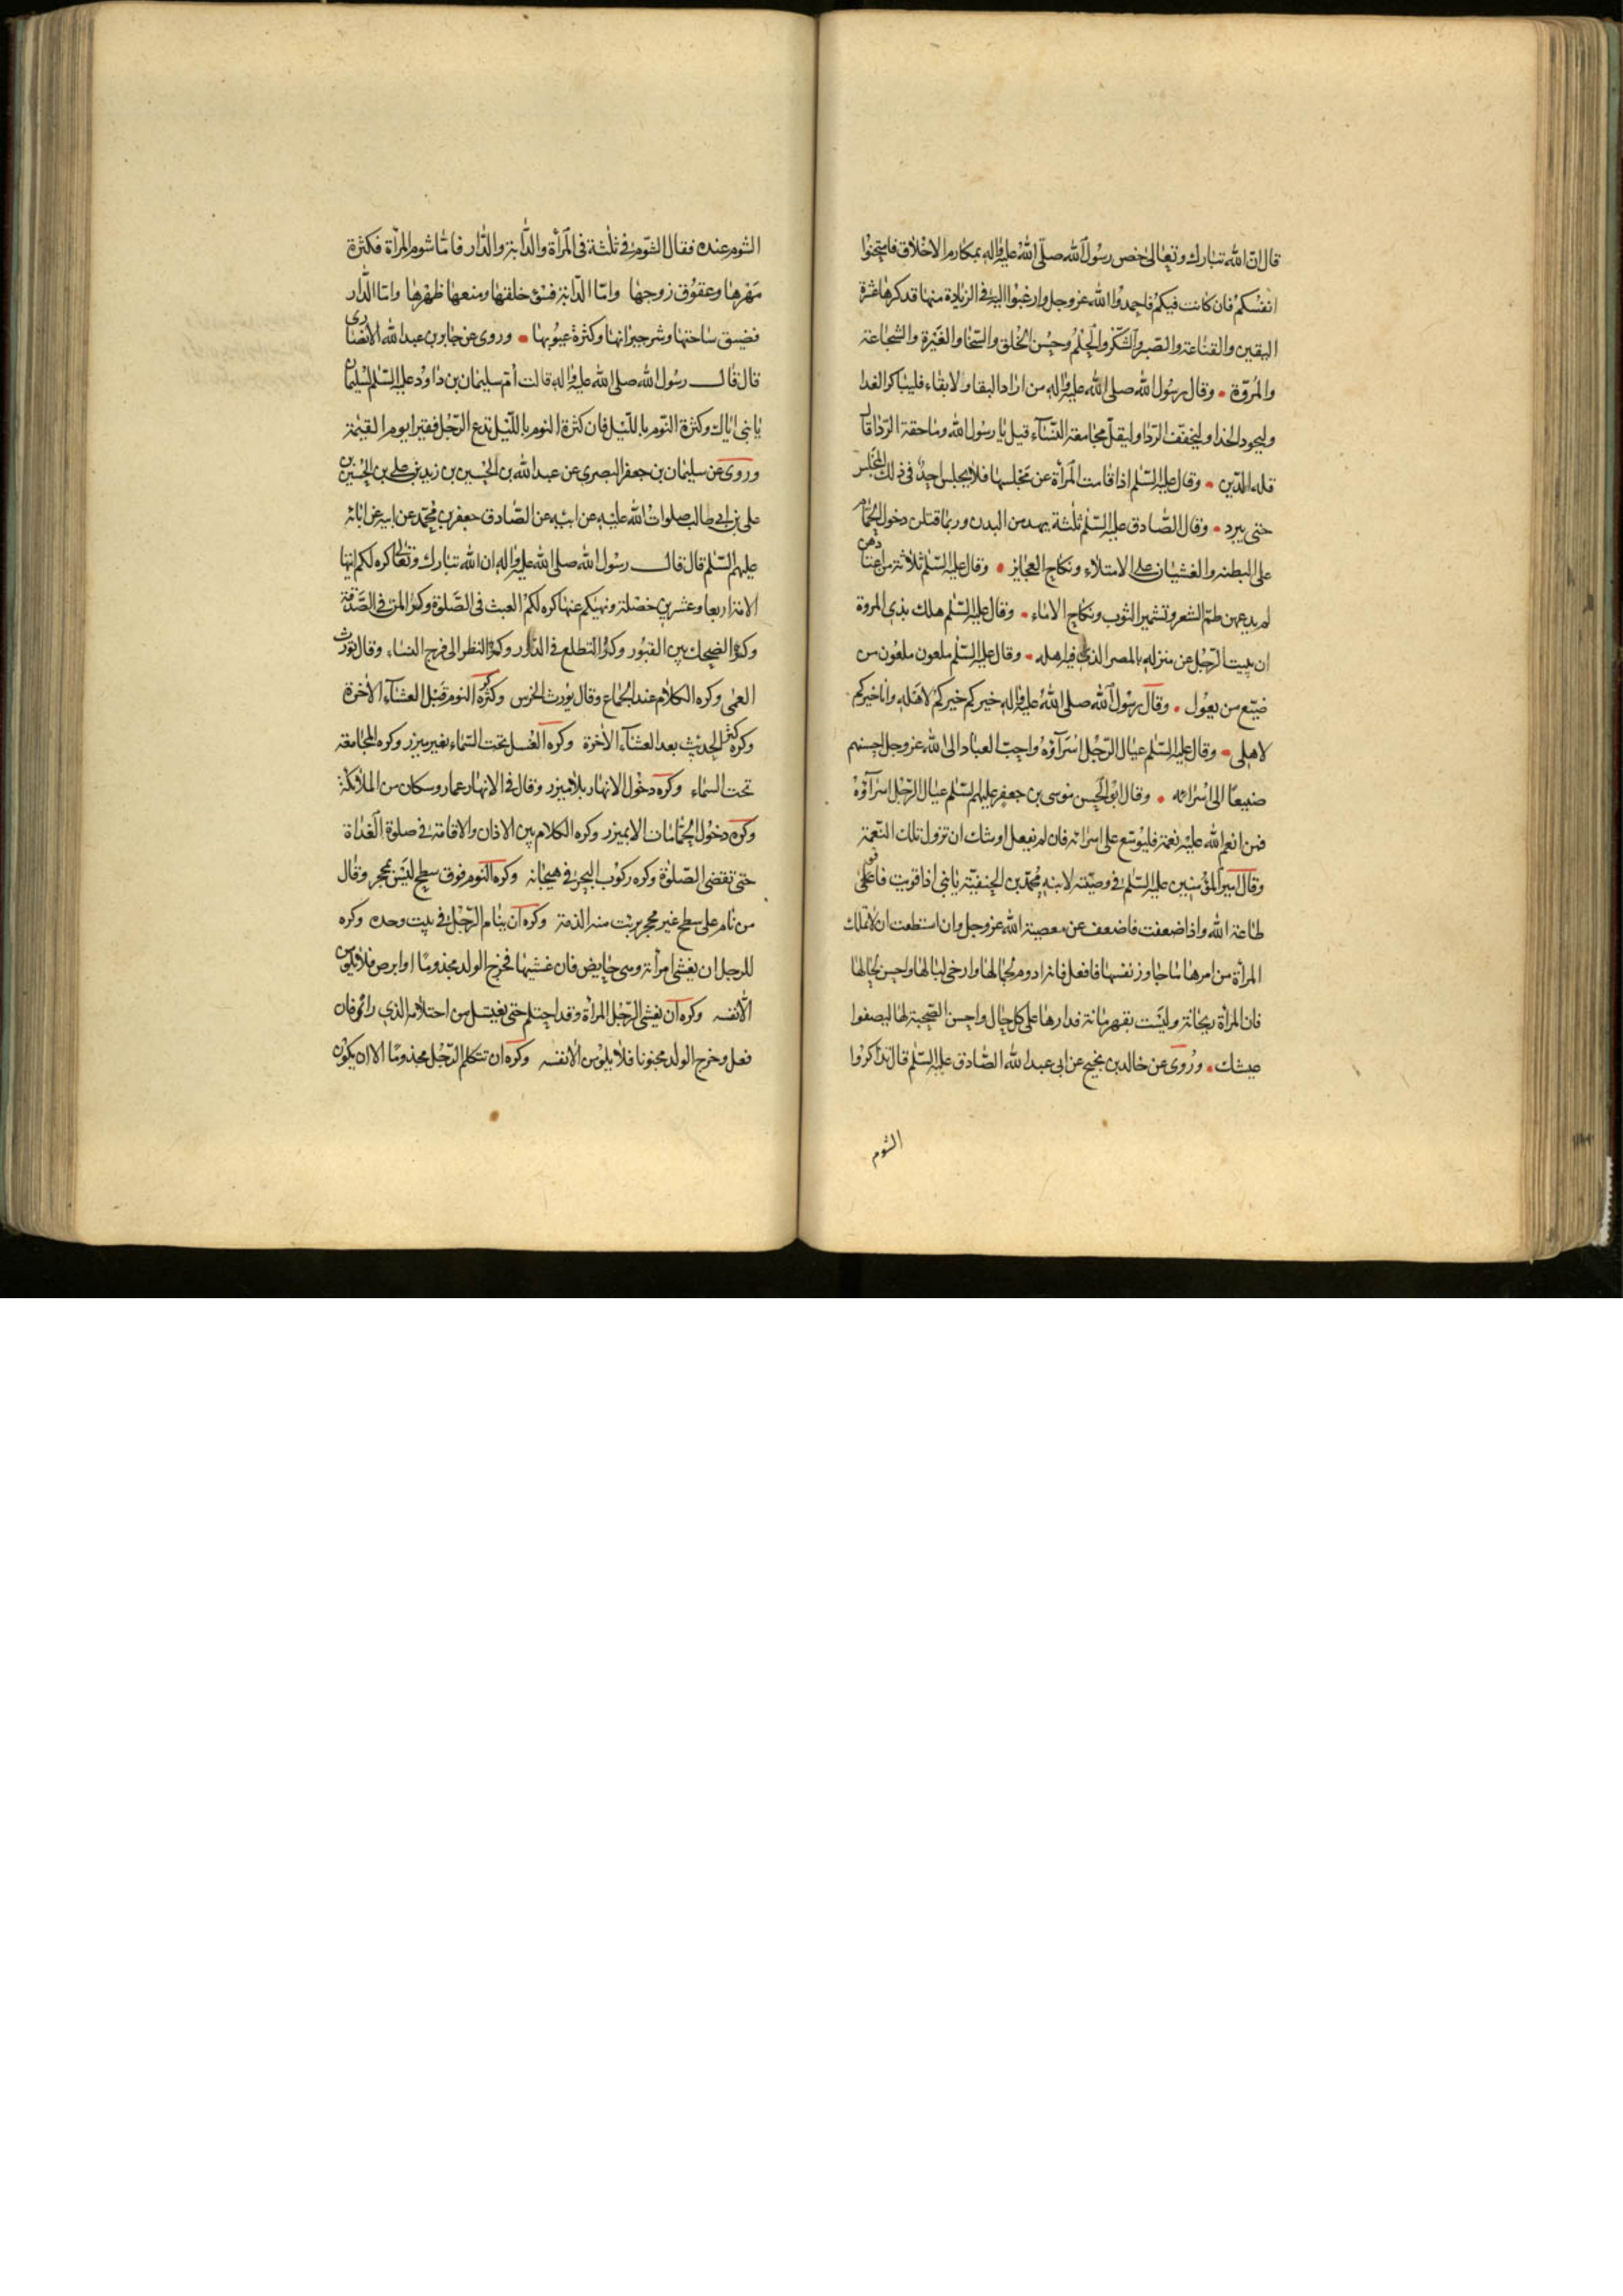 قال ان الله تبارك وتعالى خص رسول الله صلى الله عليه واله بمكارم الاخلاق فامتحنوا
انفسكم فان كانت فيكم فاحمدوا الله عز وجل وارغبوا اليه في الزيادة منها فذكرها عشرة
اليقين والقناعة والصبر والشكر والحلم وحسن الخلق والسخا والغيرة والشجاعة
والمروة وقال رسول الله صلى الله عليه واله من اراد البقا ولا بقاء فليباكر الغدا
وليجود الحذا وليخفف الردا وليقل مجامعة النساء قيل يا رسول الله وما خفة الردا قال
قلة الدين وقال عليه السلم اذا قامت المرأة عن مجلسها فلا يجلس احد في ذلك المجلس
حتى يبرد وقال الصادق عليه السلم ثلثة يهدمن البدن وربما قتلن دخول الحمام
على البطنة والغشيان على الامتلاء ونكاح العجايز وقال عليه السلم ثلاثة من اعتادهن
لم يدعهن طم الشعر وتشمير الثوب ونكاح الاماء وقال عليه السلم هلك بذى المروة
ان يبيت الرجل عن منزله بالمصر الذى فيه اهله وقال عليه السلم ملعون ملعون من
ضيع من يعول وقال رسول الله صلى الله عليه واله خيركم خيركم لاهله وانا خيركم
لاهلى وقال عليه السلم عيال الرجل اسرآؤه واحب العباد الى الله عز وجل احسنهم
صنيعا الى اسرائه وقال ابو الحسن موسى بن جعفر عليهم السلم عيال الرجل اسرآؤه
فمن انعم الله عليه نعمة فليوسع على اسرائه فان لم يفعل اوشك ان تزول تلك النعمة
وقال امير المؤمنين عليه السلم في وصيته لابنه محمد بن الحنفية يا بنى اذا قويت فاقو على
طاعة الله واذا ضعفت فاضعف عن معصية الله عز وجل وان استطعت ان لا تملك
المرأة من امرها ما جاوز نفسها فافعل فانه ادوم لجمالها وارخى لبالها واحسن لحالها
فان المرأة ريحانة وليست بقهرمانة فدارها على كل حال واحسن الصحبة لها ليصفوا
عيشك وروى عن خالد بن نجيح عن ابى عبد الله الصادق عليه السلم قال تذاكروا
الشوم
الشوم عنده فقال الشوم في ثلثة في المرأة والدابة والدار فاما شوم المرأة فكثرة
مهرها وعقوق زوجها واما الدابة فسؤ خلقها ومنعها ظهرها واما الدار
فضيق ساحتها وشر جيرانها وكثرة عيوبها وروى عن جابر بن عبد الله الانصارى
قال قال رسول الله صلى الله عليه واله قالت ام سليمان بن داود عليه السلم لسليمان
يا بنى اياك وكثرة النوم بالليل فان كثرة النوم بالليل تدع الرجل فقيرا يوم القيمة
وروى عن سليمان بن جعفر البصرى عن عبد الله بن الحسين بن زيد بن على بن الحسين بن
على بن ابى طالب صلوات الله عليه عن ابيه عن الصادق جعفر بن محمد عن ابيه عن ابائه
عليهم السلم قال قال رسول الله صلى الله عليه واله ان الله تبارك وتعالى كره لكم ايتها
الامة اربعا وعشرين خصلة ونهيكم عنها كره لكم العبث فى الصلوة وكره المن فى الصدقة
وكره الضحك بين القبور وكره التطلع فى الدور وكره النظر الى فرج النساء وقال تورث
العمى وكره الكلام عند الجماع وقال يورث الخرس وكره النوم قبل العشآء الاخرة
وكره الحديث بعد العشآء الاخرة وكره الغسل تحت السماء بغير ميزر وكره المجامعة
تحت السماء وكره دخول الانهار بلا ميزر وقال فى الانهار عمار وسكان من الملائكة
وكره دخول الحمامات الا بميزر وكره الكلام بين الاذان والاقامة في صلوة الغداة
حتى تقضى الصلوة وكره ركوب البحر في هيجانه وكره النوم فوق سطح ليس بمحجر وقال
من نام على سطح غير محجر برئت منه الذمة وكره ان ينام الرجل في بيت وحده وكره
للرجل ان يغشى امرأته وهى حايض فان غشيها فخرج الولد مجذوما او ابرص فلا يلومن
الا نفسه وكره ان يغشى الرجل المرأة وقد احتلم حتى يغتسل من احتلامه الذي رائى فان
فعل وخرج الولد مجنونا فلا يلومن الا نفسه وكره ان تتكلم الرجل مجذوما الا ان يكون